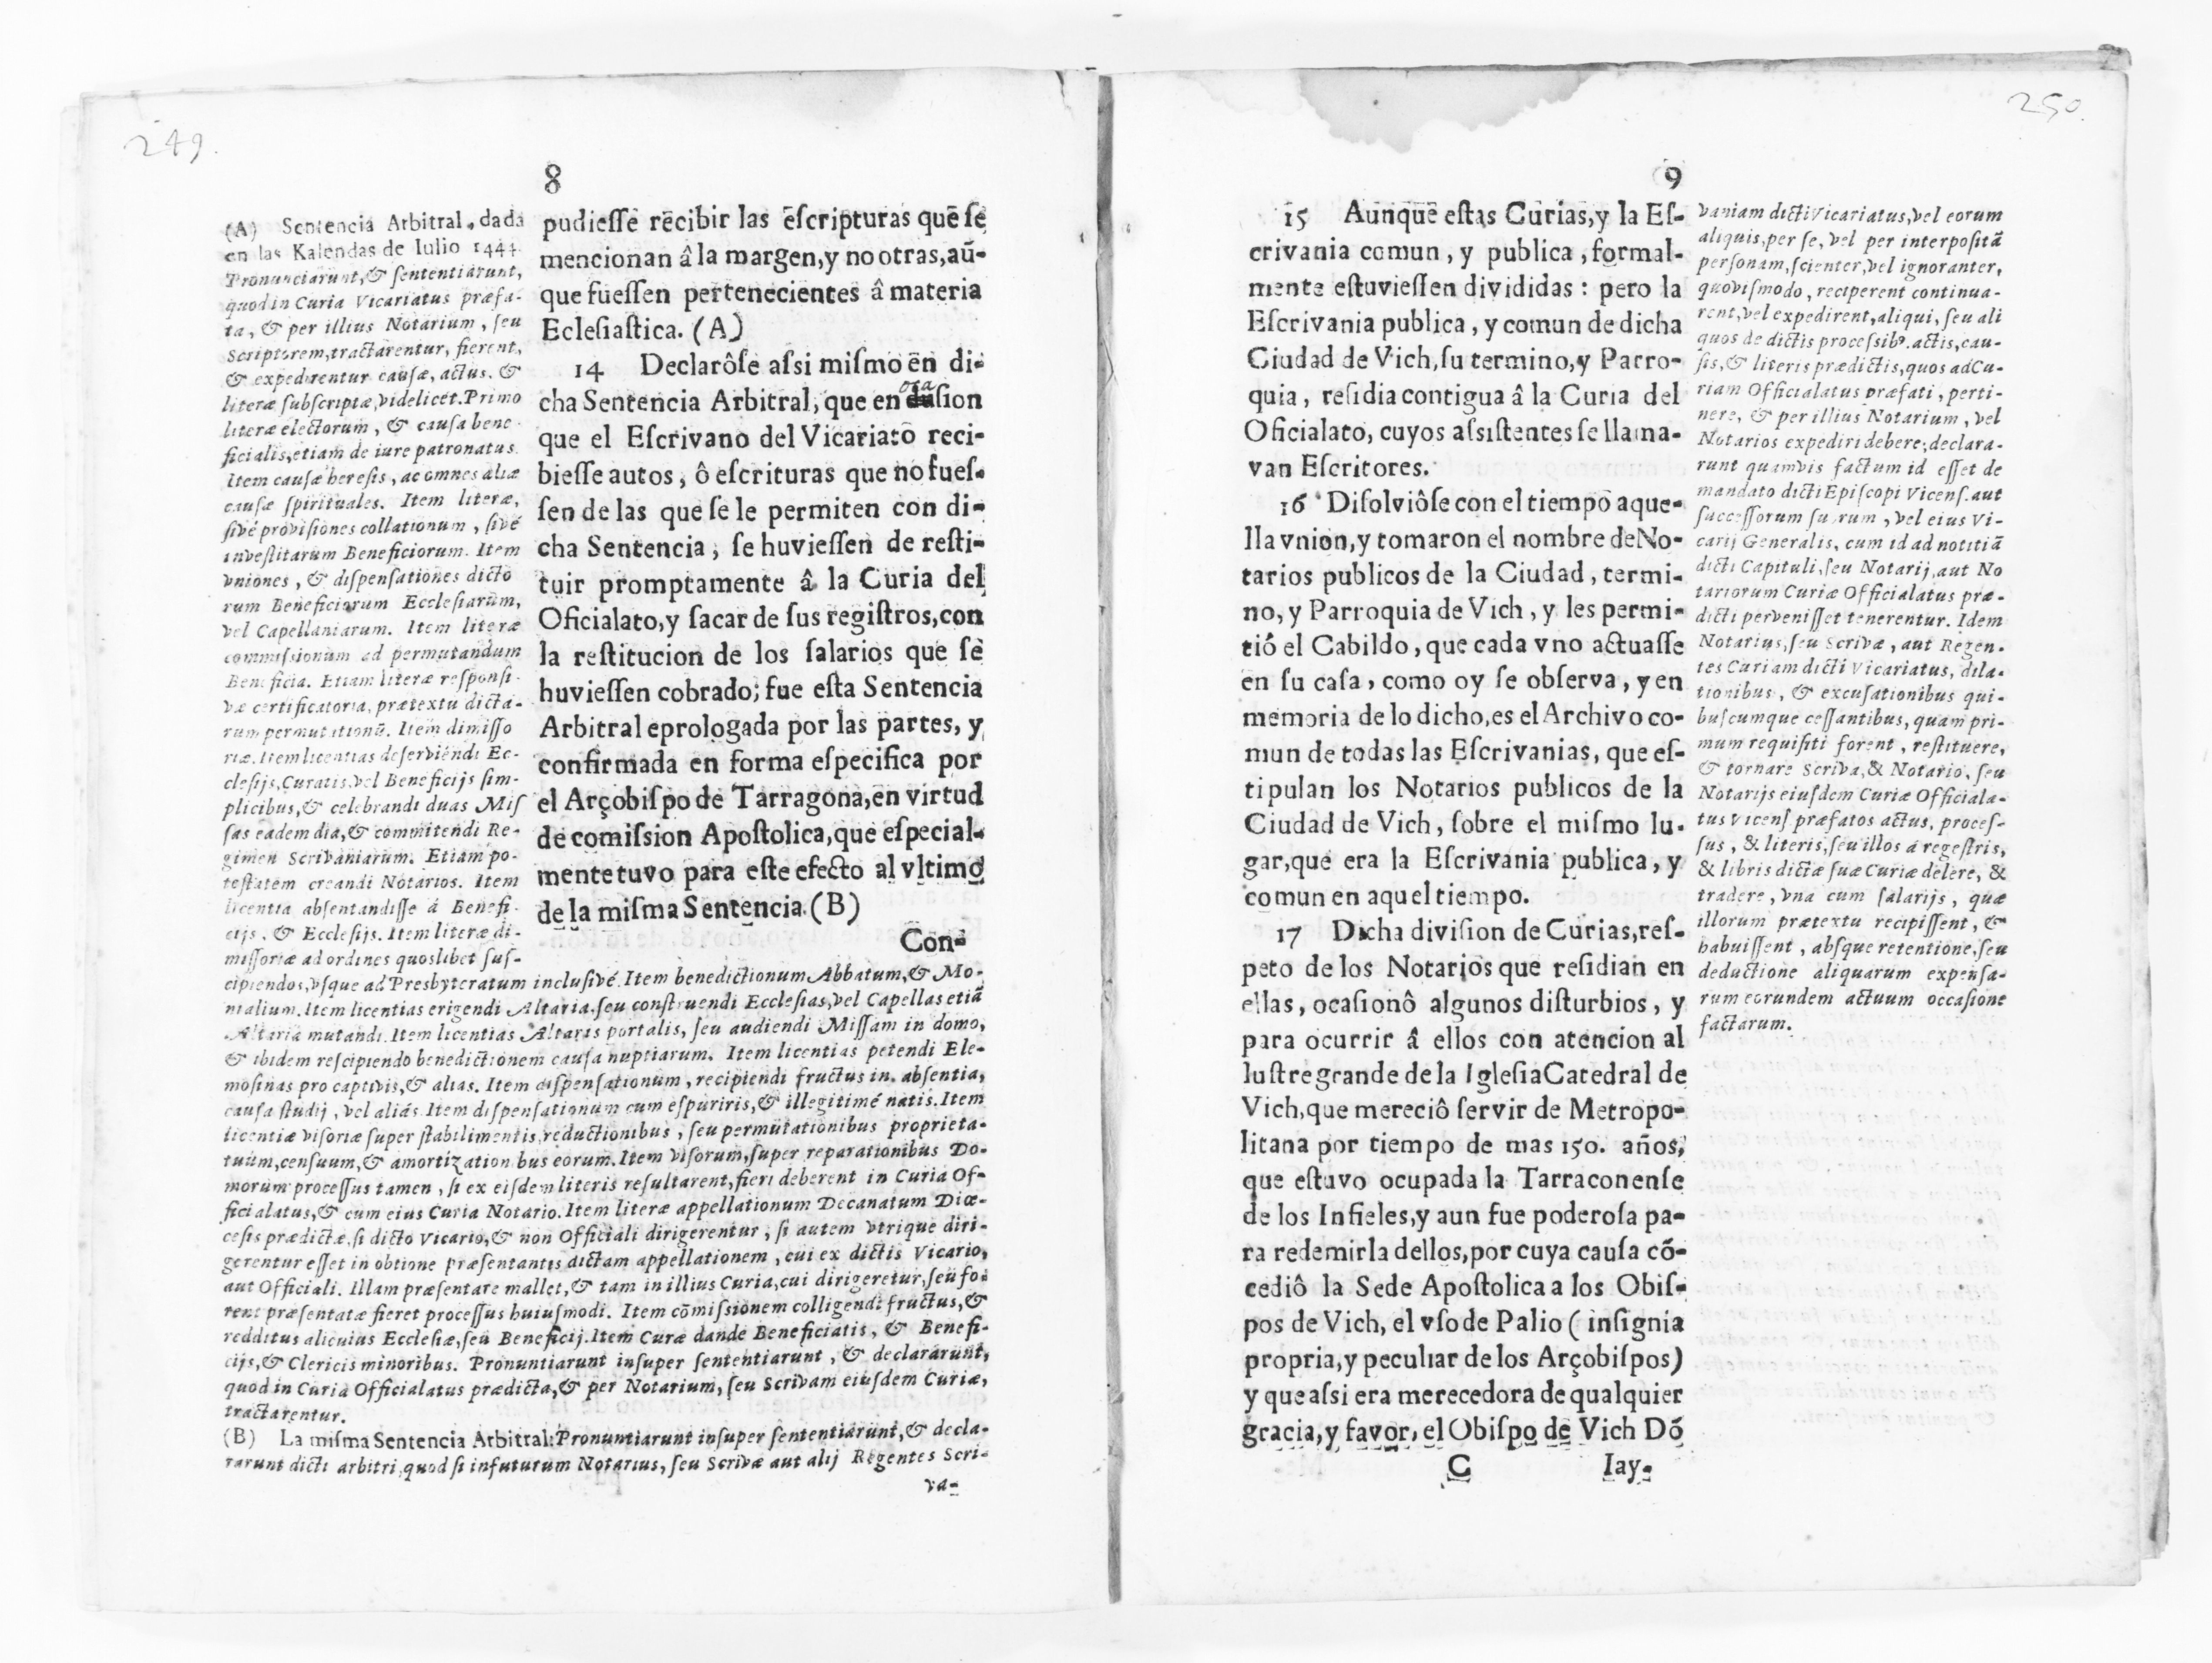 249.
8
(A) Sentencia Arbitral, dada
en las Kalendas de Iulio 1444.
Pronunciarunt, & sententiarunt,
quod in Curia Vicariatus præfa-
ta, & per illius Notarium, seu
Scriptorem, tractarentur, fierent,
& expedirentur causæ, actus. &
literæ subscriptæ, videlicet. Primo
literæ electorum, & causa bene-
ficialis, etiam de iure patronatus.
Item causæ heresis, ac omnes aliæ
causæ spirituales. Item literæ,
sivé provisiones collationum, sivé
investitarum Beneficiorum. Item
vniones, & dispensationes dicto
rum Beneficiorum Ecclesiarum,
vel Capellaniarum. Item literæ
commissionum ad permutandum
Beneficia. Etiam literæ responsi-
væ certificatoria, prætextu dicta-
rum permutationũ. Item dimisso
riæ. Item licentias deserviendi Ec-
clesijs, Curatis, vel Beneficijs sim-
plicibus, & celebrandi duas Mis
sas eadem dia, & commitendi Re-
gimen Scrivaniarum. Etiam po-
testatem creandi Notarios. Item
licentia absentandisse á Benefi-
cijs, & Ecclesijs. Item literæ di-
missoriæ ad ordines quoslibet sus-
cipiendos, vsque ad Presbyteratum inclusivé. Item benedictionum Abbatum, & Mo-
nialium. Item licentias erigendi Altaria, seu construendi Ecclesias, vel Capellas etiã
Altaria mutandi. Item licentias Altaris portalis, seu audiendi Missam in domo,
& ibidem rescipiendo benedictionem causa nuptiarum. Item licentias petendi Ele-
mosinas pro captivis, & alias. Item dispensationum, recipiendi fructus in. absentia,
causa studij, vel aliás. Item dispensationum cum espuriris, & illegitimé natis. Item
licentiæ visoriæ super stabilimentis, reductionibus, seu permutationibus proprieta-
tuum, censuum, & amortizationibus eorum. Item visorum, super reparationibus Do-
morum processus tamen, si ex eisdem literis resultarent, fieri deberent in Curia Of-
ficialatus, & cum eius Curia Notario. Item literæ appellationum Decanatum Diœ-
cesis prædictæ, si dicto Vicario, & non Officiali dirigerentur, si autem vtrique diri-
gerentur esset in obtione præsentantis dictam appellationem, cui ex dictis Vicario,
aut Officiali. Illam præsentare mallet, & tam in illius Curia, cui dirigeretur, seu fo-
rent præsentatæ fieret processus huiusmodi. Item cõmissionem colligendi fructus, &
redditus alicuius Ecclesiæ, seu Beneficij. Item Curæ dande Beneficiatis, & Benefi-
cijs, & Clericis minoribus. Pronuntiarunt insuper sententiarunt, & declararunt,
quod in Curia Officialatus prædicta, & per Notarium, seu Scrivam eiusdem Curiæ,
tractarentur.
(B) La misma Sentencia Arbitral: Pronuntiarunt insuper sententiarunt, & decla-
rarunt dicti arbitri, quod si in futurum Notarius, seu Scrivæ aut alij Regentes Scri-
va-
pudiesse recibir las escripturas que se
mencionan â la margen, y no otras, aũ-
que fuessen pertenecientes â materia
Eclesiastica. (A)
14 Declarôse assi mismo en di-
cha Sentencia Arbitral, que en ocasion
que el Escrivano del Vicariato reci-
biesse autos, ô escrituras que no fues-
sen de las que se le permiten con di-
cha Sentencia, se huviessen de resti-
tuir promptamente â la Curia del
Oficialato, y sacar de sus registros, con
la restitucion de los salarios que se
huviessen cobrado; fue esta Sentencia
Arbitral eprologada por las partes, y
confirmada en forma especifica por
el Arçobispo de Tarragona, en virtud
de comission Apostolica, que especial-
mente tuvo para este efecto al vltimo
de la misma Sentencia. (B)
Con-
250.
9
15 Aunque estas Curias, y la Es-
crivania comun, y publica, formal-
mente estuviessen divididas: pero la
Escrivania publica, y comun de dicha
Ciudad de Vich, su termino, y Parro-
quia, residia contigua â la Curia del
Oficialato, cuyos assistentes se llama-
van Escritores.
16 Disolviôse con el tiempo aque-
lla vnion, y tomaron el nombre de No-
tarios publicos de la Ciudad, termi-
no, y Parroquia de Vich, y les permi-
tió el Cabildo, que cada vno actuasse
en su casa, como oy se observa, y en
memoria de lo dicho, es el Archivo co-
mun de todas las Escrivanias, que es-
tipulan los Notarios publicos de la
Ciudad de Vich, sobre el mismo lu-
gar, que era la Escrivania publica, y
comun en aquel tiempo.
17 Dicha division de Curias, res-
peto de los Notarios que residian en
ellas, ocasionô algunos disturbios, y
para ocurrir â ellos con atencion al
lustre grande de la Iglesia Catedral de
Vich, que mereciô servir de Metropo-
litana por tiempo de mas 150. años,
que estuvo ocupada la Tarraconense
de los Infieles, y aun fue poderosa pa-
ra redemirla dellos, por cuya causa cõ-
cediô la Sede Apostolica a los Obis-
pos de Vich, el vso de Palio ( insignia
propria, y peculiar de los Arçobispos)
y que assi era merecedora de qualquier
gracia, y favor, el Obispo de Vich Dõ
C Iay-
vaniam dicti Vicariatus, vel eorum
aliquis, per se, vel per interpositã
personam, scienter, vel ignoranter,
quovismodo, reciperent continua-
rent, vel expedirent, aliqui, seu ali
quos de dictis processib9. actis, cau-
sis, & literis prædictis, quos ad Cu-
riam Officialatus præfati, perti-
nere, & per illius Notarium, vel
Notarios expediri debere; declara-
runt quamvis factum id esset de
mandato dicti Episcopi Vicens. aut
successorum suorum, vel eius Vi-
carij Generalis, cum id ad notitiã
dicti Capituli, seu Notarij, aut No
tariorum Curiæ Officialatus præ-
dicti pervenisset tenerentur. Idem
Notarius, seu Scrivæ, aut Regen-
tes Curiam dicti Vicariatus, dila-
tionibus, & excusationibus qui-
buscumque cessantibus, quam pri-
mum requisiti forent, restituere,
& tornare Scriva, & Notario, seu
Notarijs eiusdem Curiæ Officiala-
tus Vicens præfatos actus, proces-
sus, & literis, seu illos á regestris,
& libris dictæ suæ Curiæ delere, &
tradere, vna cum salarijs, quæ
illorum prætextu recipissent, &
habuissent, absque retentione, seu
deductione aliquarum expensa-
rum eorundem actuum occasione
factarum.